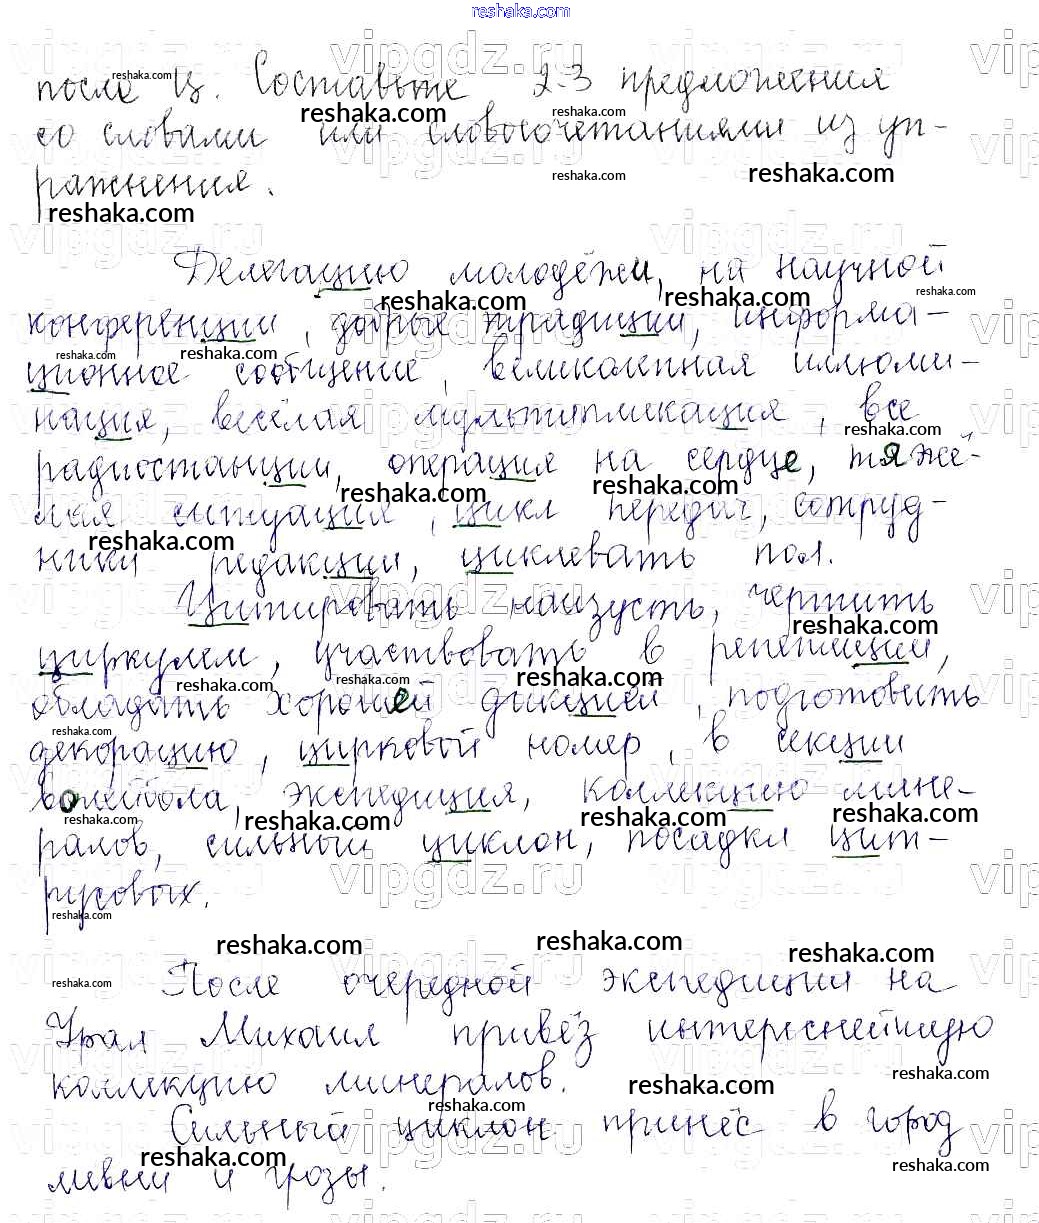 reshaka.com
после Ц. Составьте 2-3 предложения
со словами или словосочетаниями из уп-
ражнения.
Делегацию молодёжи, на научной
конференции, добрые традиции, информа-
ционное сообщение, великолепная иллюми-
нация, весёлая мультипликация, все
радиостанции, операция на сердце, тяжё-
лая ситуация, цикл передач, сотруд-
ники редакции, циклевать пол.
Цитировать наизусть, чертить
циркулем, участвовать в репетиции,
обладать хорошей дикцией, подготовить
декорацию, цирковой номер, в секции
волейбола, экспедиция, коллекцию мине-
ралов, сильный циклон, посадки цит-
русовых.
После очередной экспедиции на
Урал Михаил привёз интереснейшую
коллекцию минералов.
Сильный циклон принёс в город
ливни и грозы.